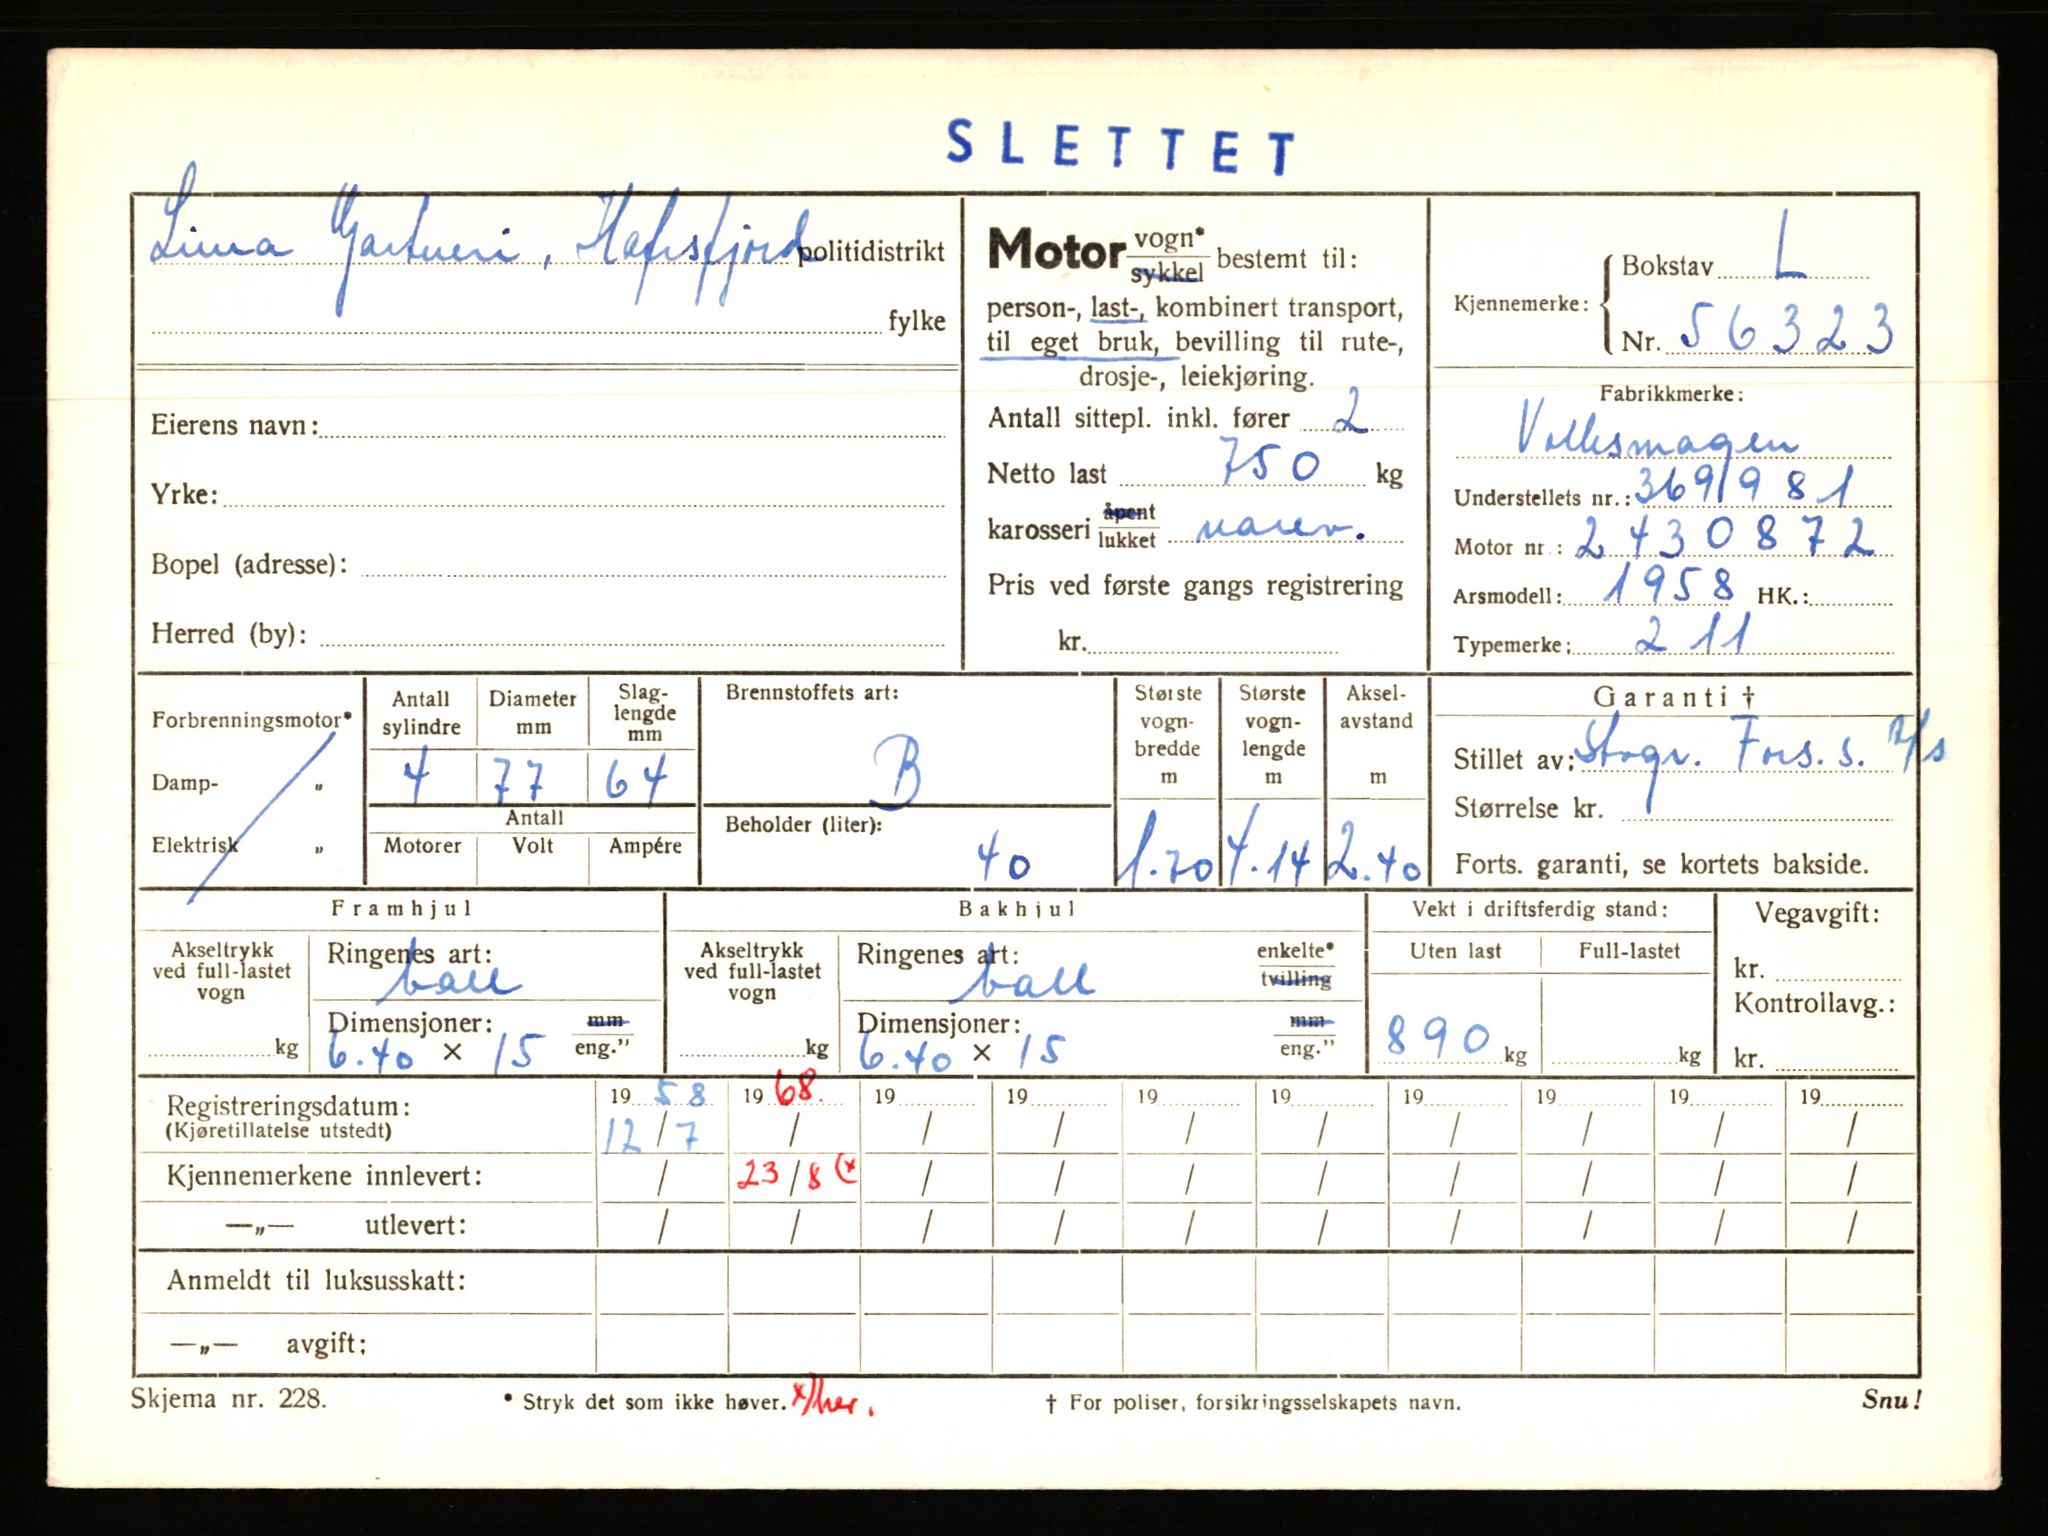 SLETTET
Lima Gartneri, Hafrsfjord politidistrikt
fylke
Motor vogn* sykkel bestemt til:
person-, last-, kombinert transport,
til eget bruk, bevilling til rute-,
drosje-, leiekjøring.
Antall sittepl. inkl. fører 2
Netto last 750 kg
karosseri åpent lukket varev.
Pris ved første gangs registrering
kr.
Kjennemerke: Bokstav L
Nr. 56323
Fabrikkmerke:
Volkswagen
Understellets nr.: 369981
Motor nr.: 2430872
Årsmodell: 1958 HK.:
Typemerke: 211
Eierens navn:
Yrke:
Bopel (adresse):
Herred (by):
Forbrenningsmotor*
Damp- „
Elektrisk „
Antall sylindre
Diameter mm
Slag-lengde mm
4 77 64
Antall
Motorer Volt Ampére
Brennstoffets art:
B
Beholder (liter):
40
Største vogn-bredde m
1.70
Største vogn-lengde m
4.14
Aksel-avstand m
2.40
Garanti †
Stillet av: Stvgr. Fors.s. A/s
Størrelse kr.
Forts. garanti, se kortets bakside.
Framhjul
Akseltrykk ved full-lastet vogn
kg
Ringenes art:
ball
Dimensjoner: mm eng."
6.40 × 15
Bakhjul
Akseltrykk ved full-lastet vogn
kg
Ringenes art: enkelte* tvilling
ball
Dimensjoner: mm eng."
6.40 × 15
Vekt i driftsferdig stand:
Uten last Full-lastet
890 kg kg
Vegavgift:
kr.
Kontrollavg.:
kr.
Registreringsdatum: 19 58 19 68. 19 19 19 19 19 19 19 19
(Kjøretillatelse utstedt) 12/7 / / / / / / / / /
Kjennemerkene innlevert: / 23/8 (x / / / / / / / /
—„— utlevert: / / / / / / / / / /
Anmeldt til luksusskatt:
—„— avgift:
Skjema nr. 228. * Stryk det som ikke høver. x/her. † For poliser, forsikringsselskapets navn. Snu!